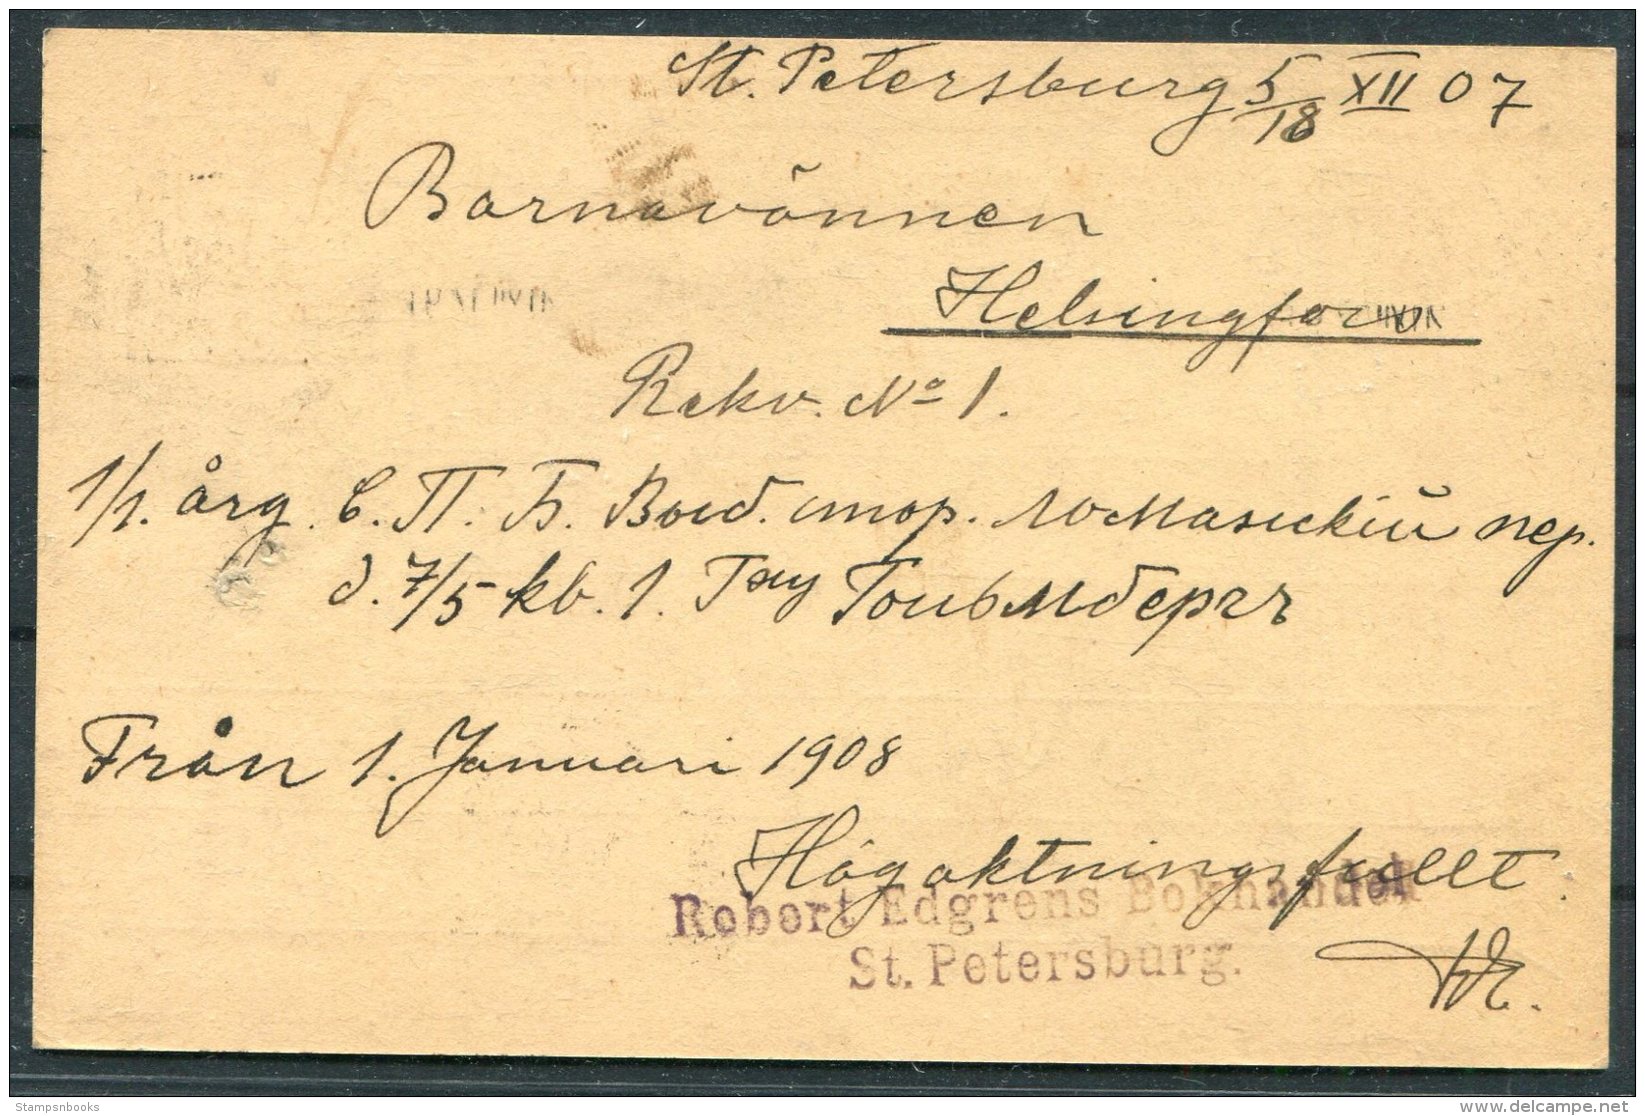 St. Petersburg 5/18 XII 07
Barnavännen
Helsingfors
Rekv. No 1.
1/1. årg. С. П. Б. Выб. стор. Ломанскій пер.
д. 7/5 кв. 1. Г-ну Гольмбергъ
Från 1. Januari 1908
Högaktningsfullt
Robert Edgrens Bokhandel
St. Petersburg.
Stampsnbooks
delcampe.net